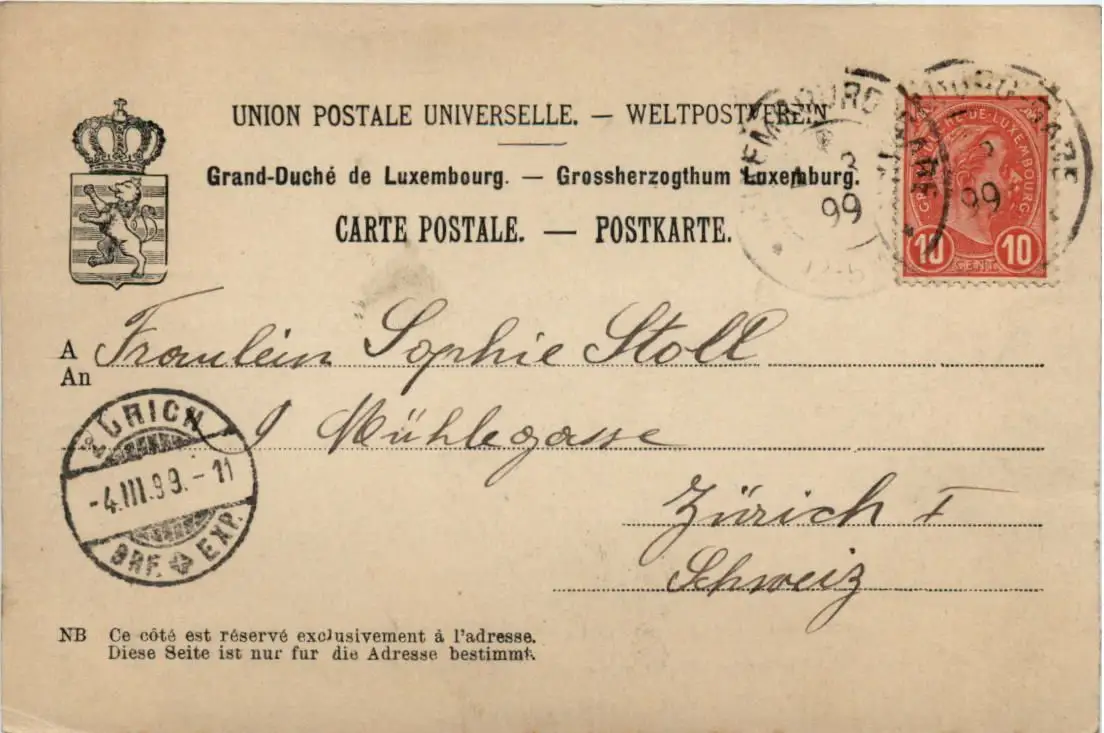 UNION POSTALE UNIVERSELLE. — WELTPOSTVEREIN
Grand-Duché de Luxembourg. — Grossherzogthum Luxemburg.
CARTE POSTALE. — POSTKARTE.
LUXEMBOURG GARE
3
99
LUXEMBOURG GARE
3
99
GRAND DUCHÉ DE LUXEMBOURG
10 10
CENT.
A Fraulein Sophie Stoll
An
9 Mühlegasse
Zürich I
Schweiz
ZÜRICH
-4.III.99.-11
BRF. EXP.
NB Ce côté est réservé exclusivement à l'adresse.
Diese Seite ist nur fur die Adresse bestimmt.